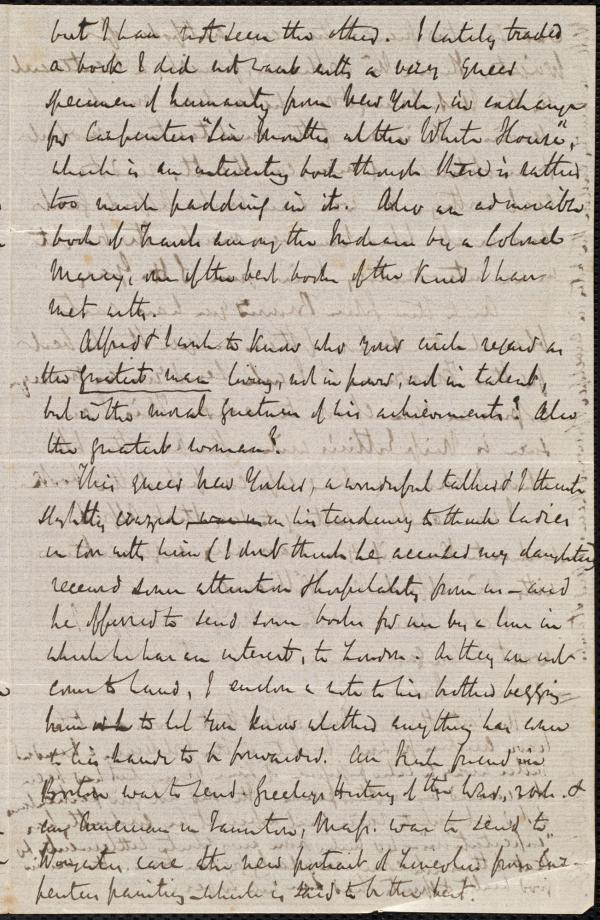 but I have not seen the other. I lately traded
a book I did not want with a very queer
specimen of humanity from New York, in exchange
for Carpenters "Six Months at the White House",
which is an interesting book though there is rather
too much padding in it. Also an admirable
book of Travels among the Indians by a Colonel
Marcy, one of the best books of the kind I have
met with.
Alfred & I wish to know who your circle regard as
the greatest man living, not in power, not in talent,
but in the moral greatness of his achievements? Also
the greatest woman?
This queer New Yorker, a wonderful talker & I think
slightly crazed, in his tendency to think ladies
in love with him (I don't think he accused my daughters)
received some attention & hospitality from us – and
he offered to send some books for me by a line in
which he has an interest, to London. As they do not
come to hand, I enclose a note to his brother begging
him to let you know whether anything has come
to his hands to be forwarded. An Irish friend in
Boston was to send Greeleys History of the War, 2 vols. &
an American in Taunton, Mass. was to send to
care the new portrait of Lincoln from Car-
penters painting – which is said to be the best.